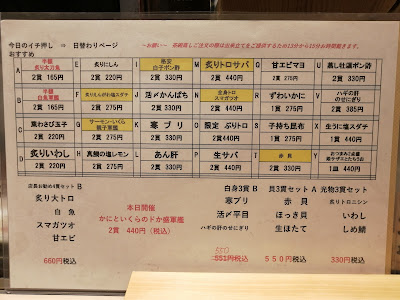 今日のイチ押し ⇒ 日替わりページ
おすすめ
A
手握
炙り太刀魚
2貫 165円
E
炙にしん
2貫 220円
I
限定
白子ポン酢
2貫 330円
M
炙りトロサバ
2貫 440円
Q
甘エビマヨ
1貫 275円
U
蒸し牡蠣ポン酢
2貫 330円
B
手握
白魚軍艦
2貫 165円
F
炙りえんがわ塩スダチ
2貫 275円
J
活〆かんぱち
2貫 330円
N
金身トロ
スマガツオ
2貫 440円
R
ずわいかに
1貫 275円
V
ハギの肝
のせにぎり
2貫 385円
C
葉わさび玉子
2貫 220円
G
サーモン・いくら
親子軍艦
2貫 275円
K
寒ブリ
2貫 330円
O
限定 ぶりトロ
2貫 440円
S
子持ち昆布
1貫 275円
X
生うに塩スダチ
2貫 440円
D
炙りいわし
2貫 220円
H
真鯛の塩レモン
2貫 275円
L
あん肝
2貫 330円
P
生サバ
2貫 440円
T
赤貝
1貫 330円
Y
1皿 440円
店長お勧め4貫セット B
炙り大トロ
白魚
スマガツオ
甘エビ
660円税込
本日開催
かにといくらのドカ盛軍艦
2貫 440円(税込)
白身3貫 B
寒ブリ
活〆平目
ハギの肝のせにぎり
550
551円税込
貝3貫セット A
赤貝
ほっき貝
生ほたて
550円税込
光物3貫セット
炙りトロニシン
いわし
しめ鯖
330円税込